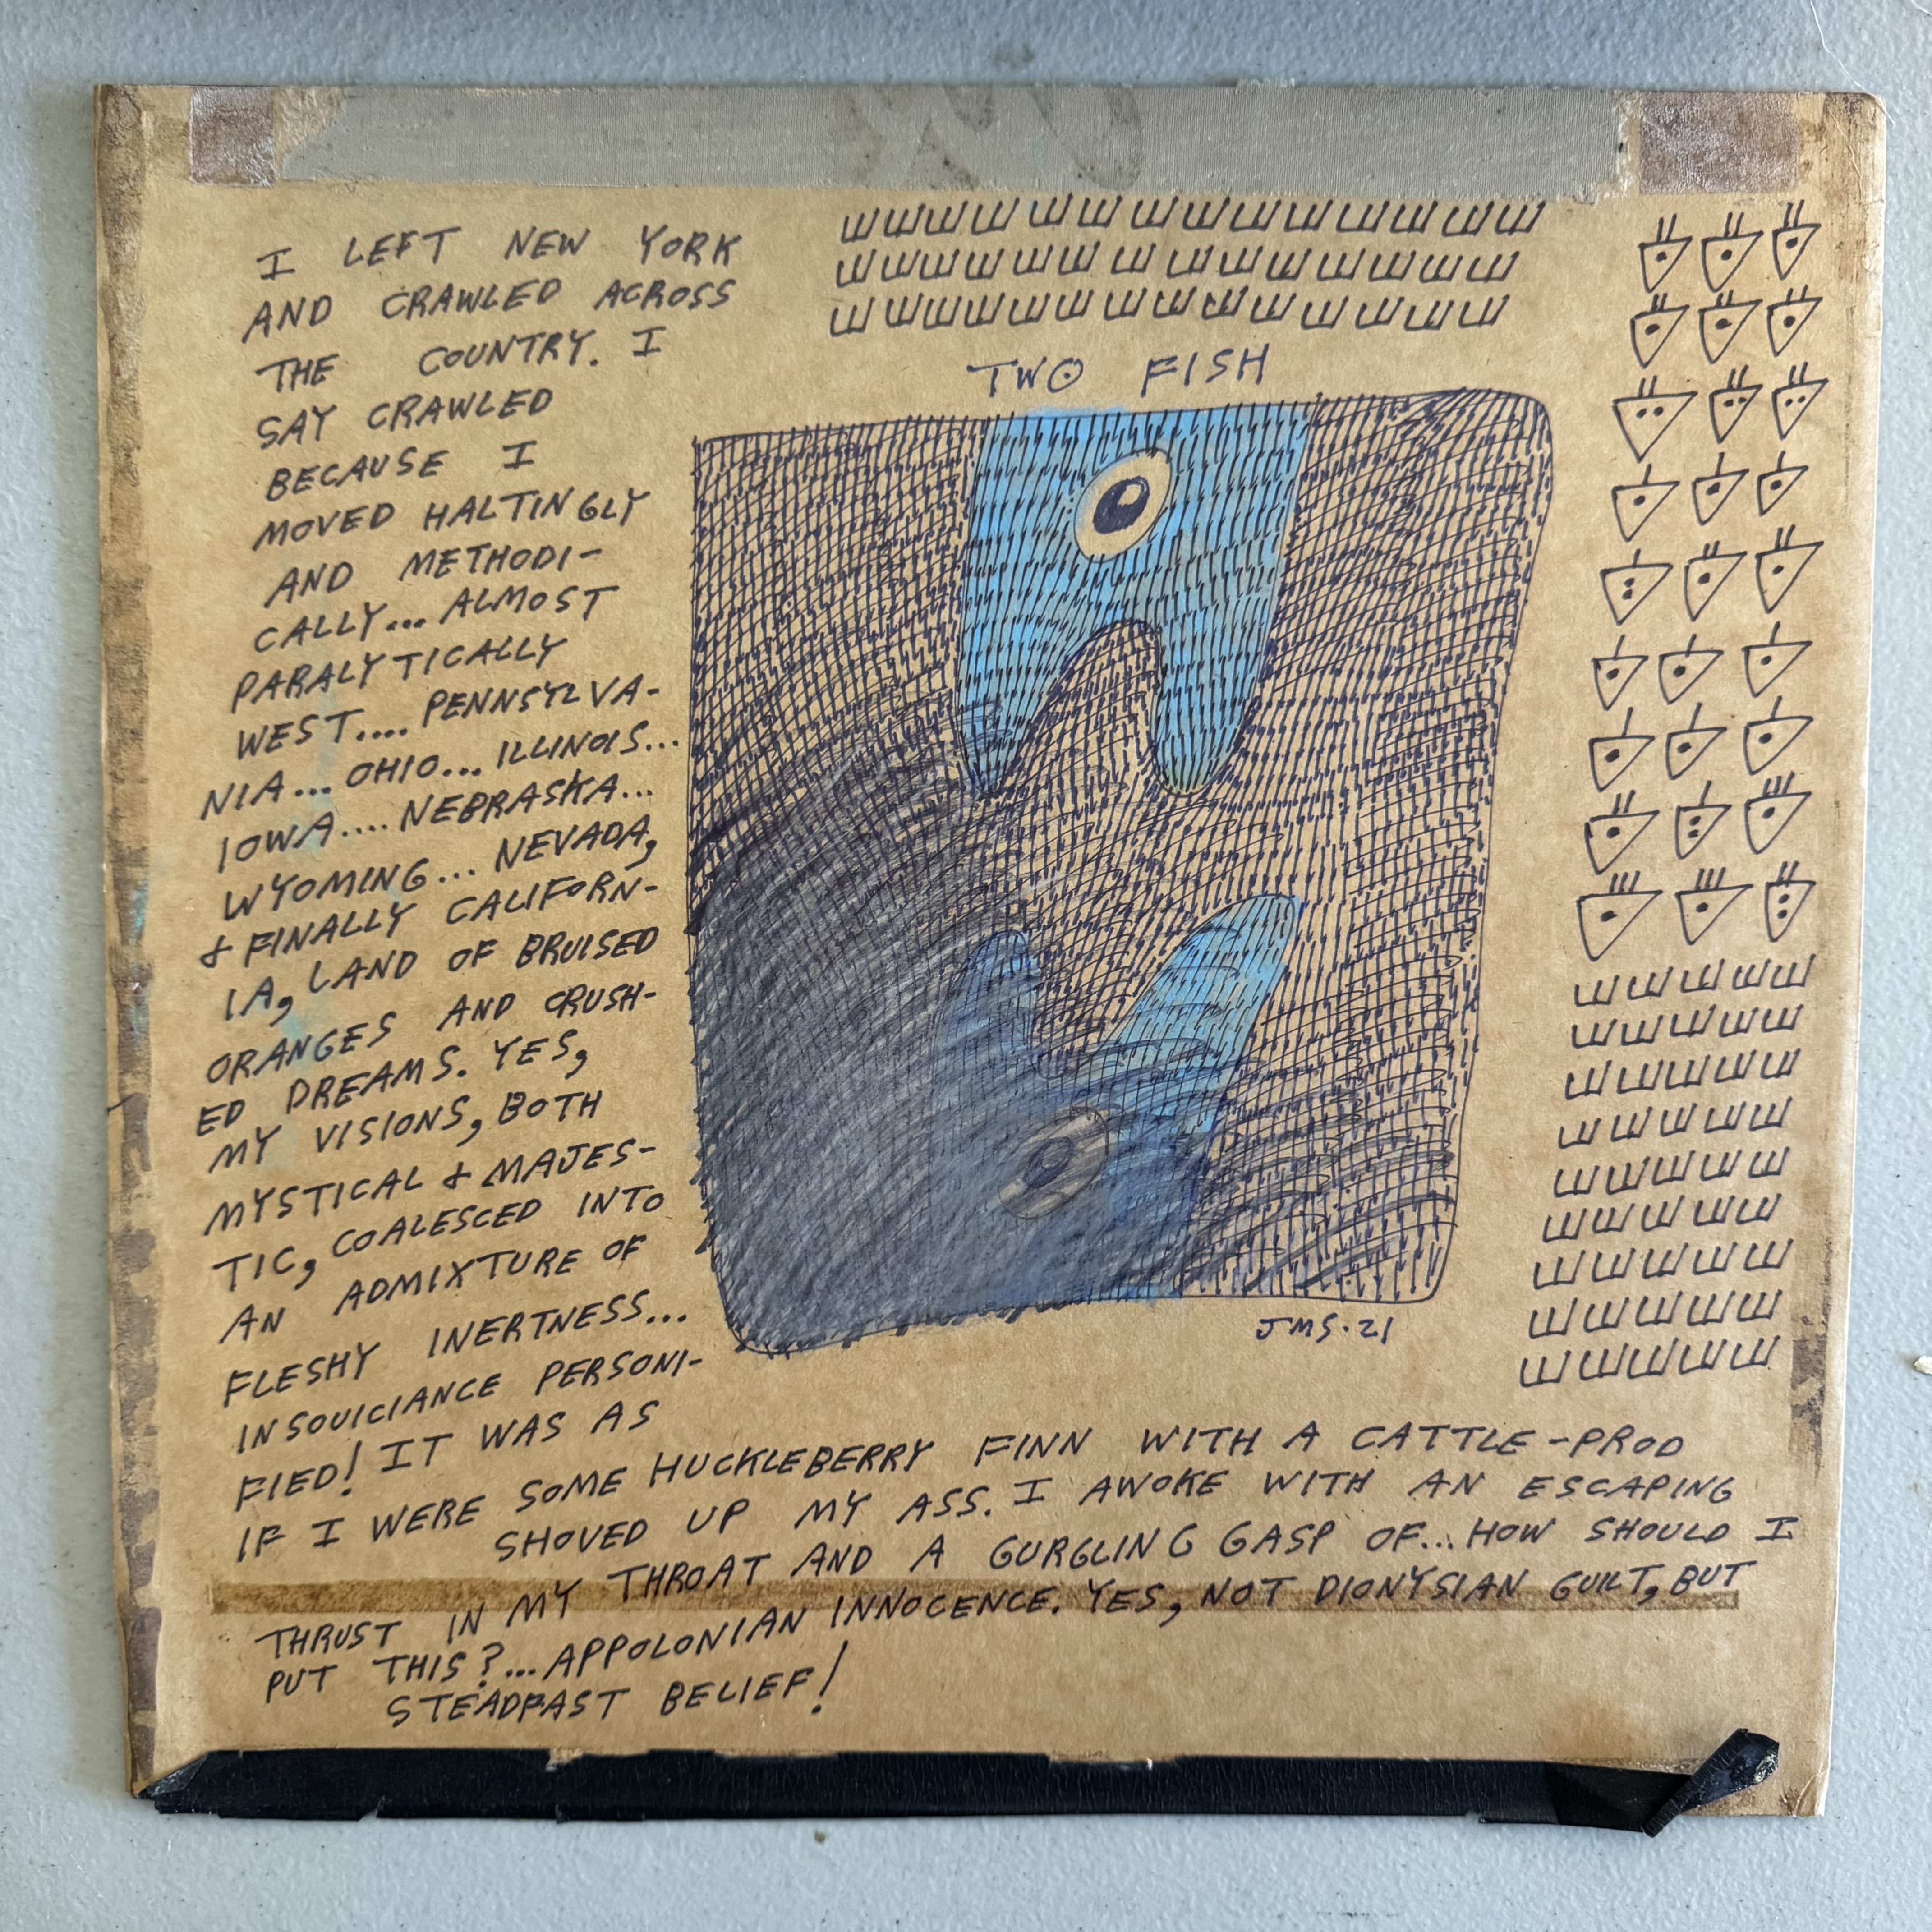 I LEFT NEW YORK
AND CRAWLED ACROSS
THE COUNTRY. I
SAY CRAWLED
BECAUSE I
MOVED HALTINGLY
AND METHODI-
CALLY... ALMOST
PARALYTICALLY
WEST.... PENNSYLVA-
NIA... OHIO... ILLINOIS...
IOWA.... NEBRASKA...
WYOMING... NEVADA,
& FINALLY CALIFORN-
IA, LAND OF BRUISED
ORANGES AND CRUSH-
ED DREAMS. YES,
MY VISIONS, BOTH
MYSTICAL & MAJES-
TIC, COALESCED INTO
AN ADMIXTURE OF
FLESHY INERTNESS...
INSOUICIANCE PERSONI-
FIED! IT WAS AS
IF I WERE SOME HUCKLEBERRY FINN WITH A CATTLE-PROD
SHOVED UP MY ASS. I AWOKE WITH AN ESCAPING
THRUST IN MY THROAT AND A GURGLING GASP OF... HOW SHOULD I
PUT THIS?... APPOLONIAN INNOCENCE. YES, NOT DIONYSIAN GUILT, BUT
STEADFAST BELIEF!
TWO FISH
JMS.21